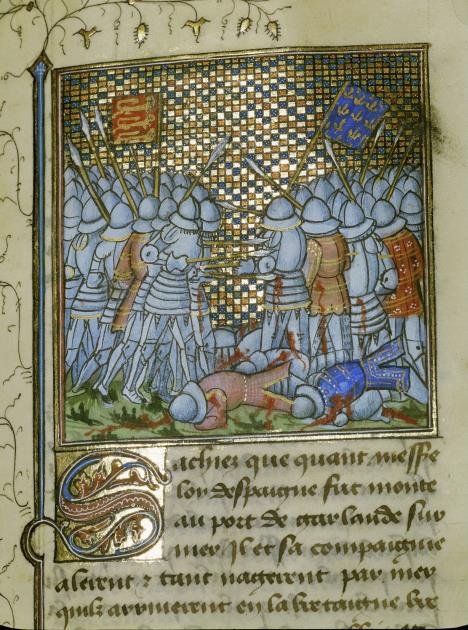 Sachiez que quant messe
loys despaigne fut monte
au port de garlande sur
mer. Il et sa compaignie
alerent & tant nagerent par mer
quilz arriuerent en la bretaigne bre